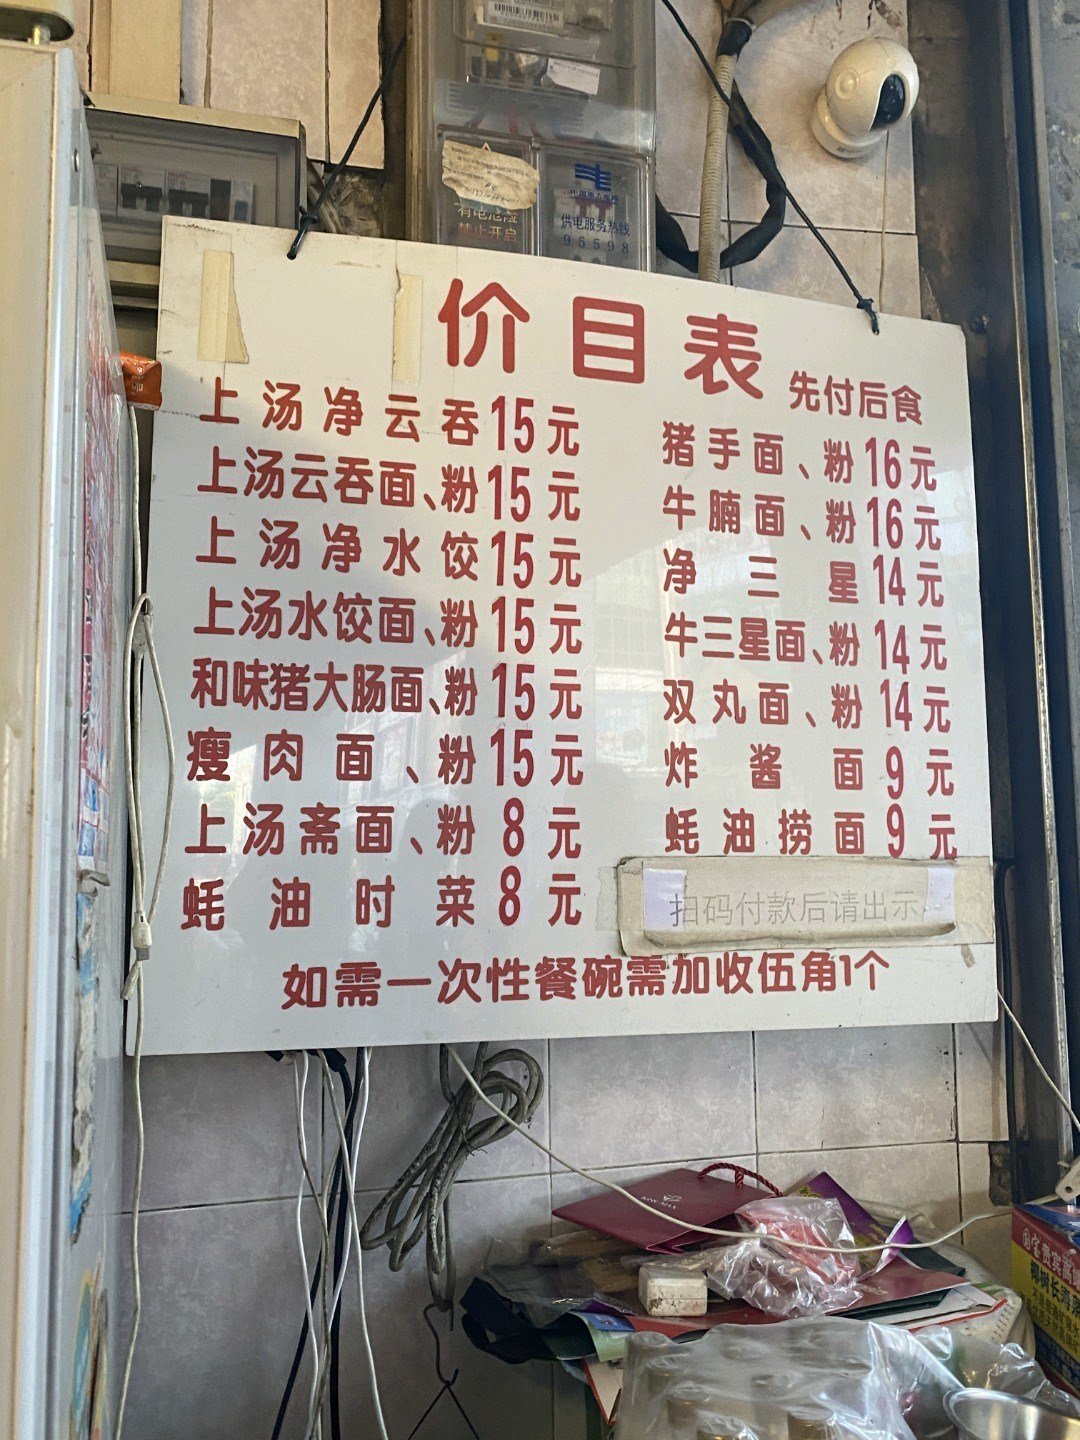 有电危险
禁止开启
供电服务热线
95598
价目表
先付后食
上汤净云吞15元
上汤云吞面、粉15元
上汤净水饺15元
上汤水饺面、粉15元
和味猪大肠面、粉15元
瘦肉面、粉15元
上汤斋面、粉8元
蚝油时菜8元
猪手面、粉16元
牛腩面、粉16元
净三星14元
牛三星面、粉14元
双丸面、粉14元
炸酱面9元
蚝油捞面9元
扫码付款后请出示
如需一次性餐碗需加收伍角1个